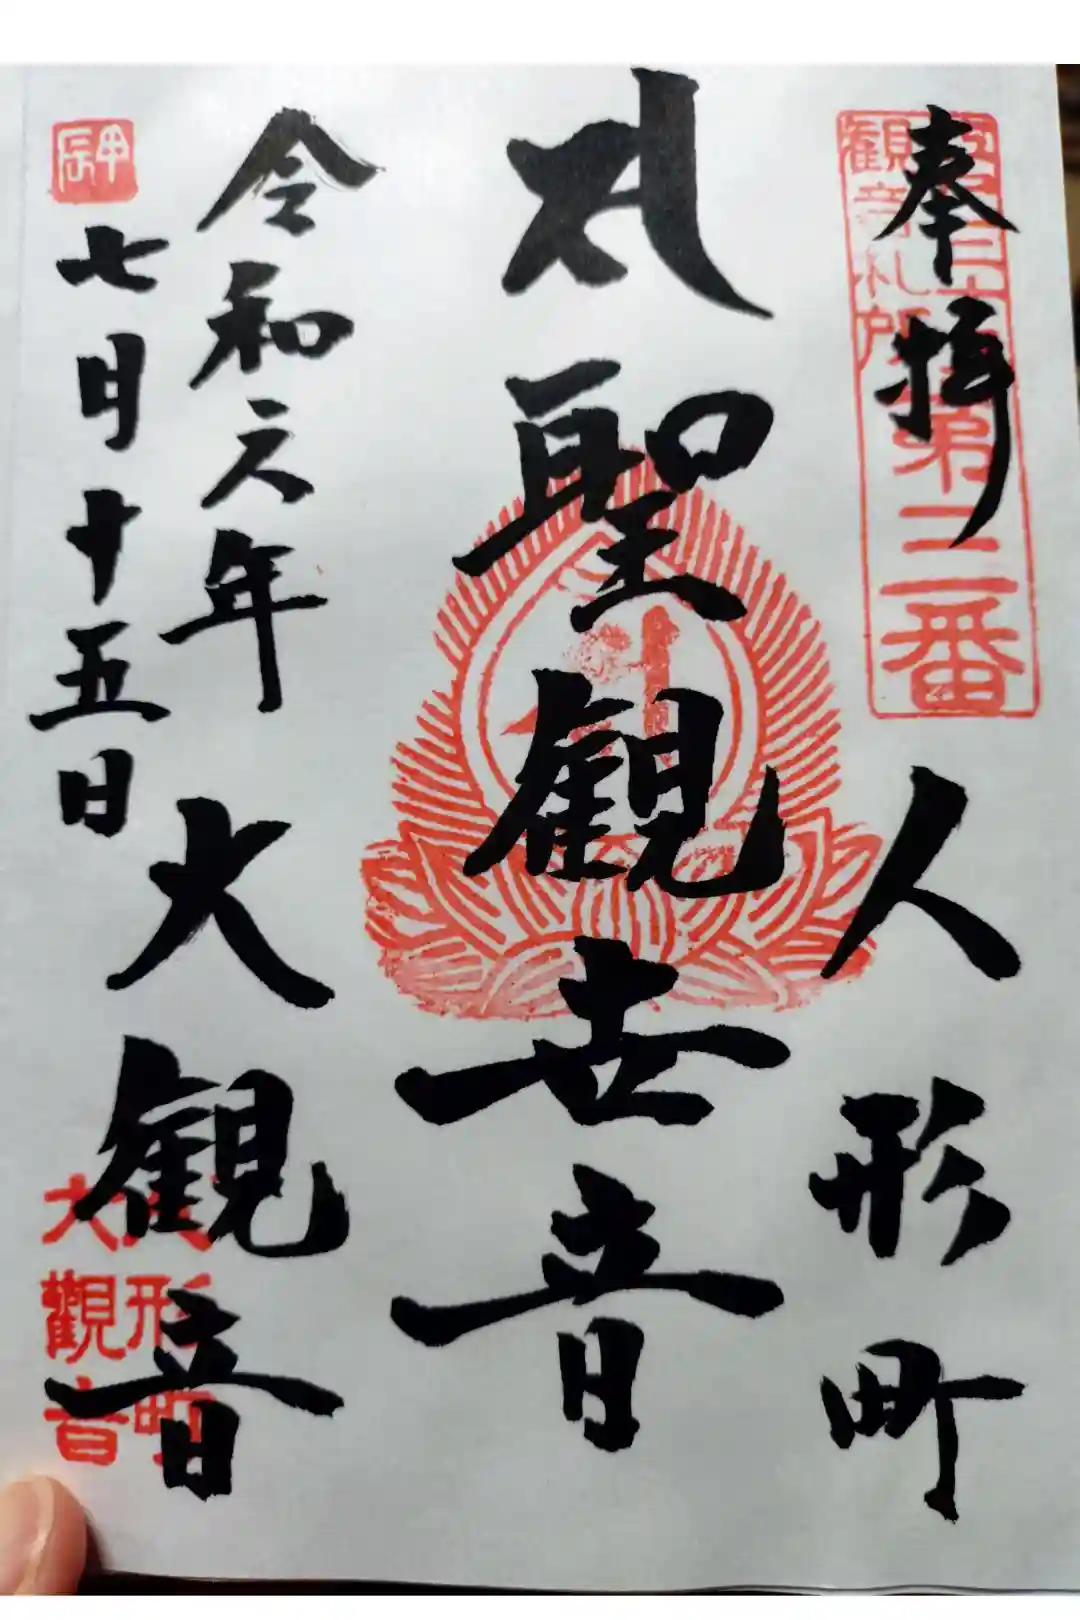 奉拝
観音札所第三番
人形町
聖観世音
令和六年
七月十五日
甲辰
大観音
人形町
大觀音